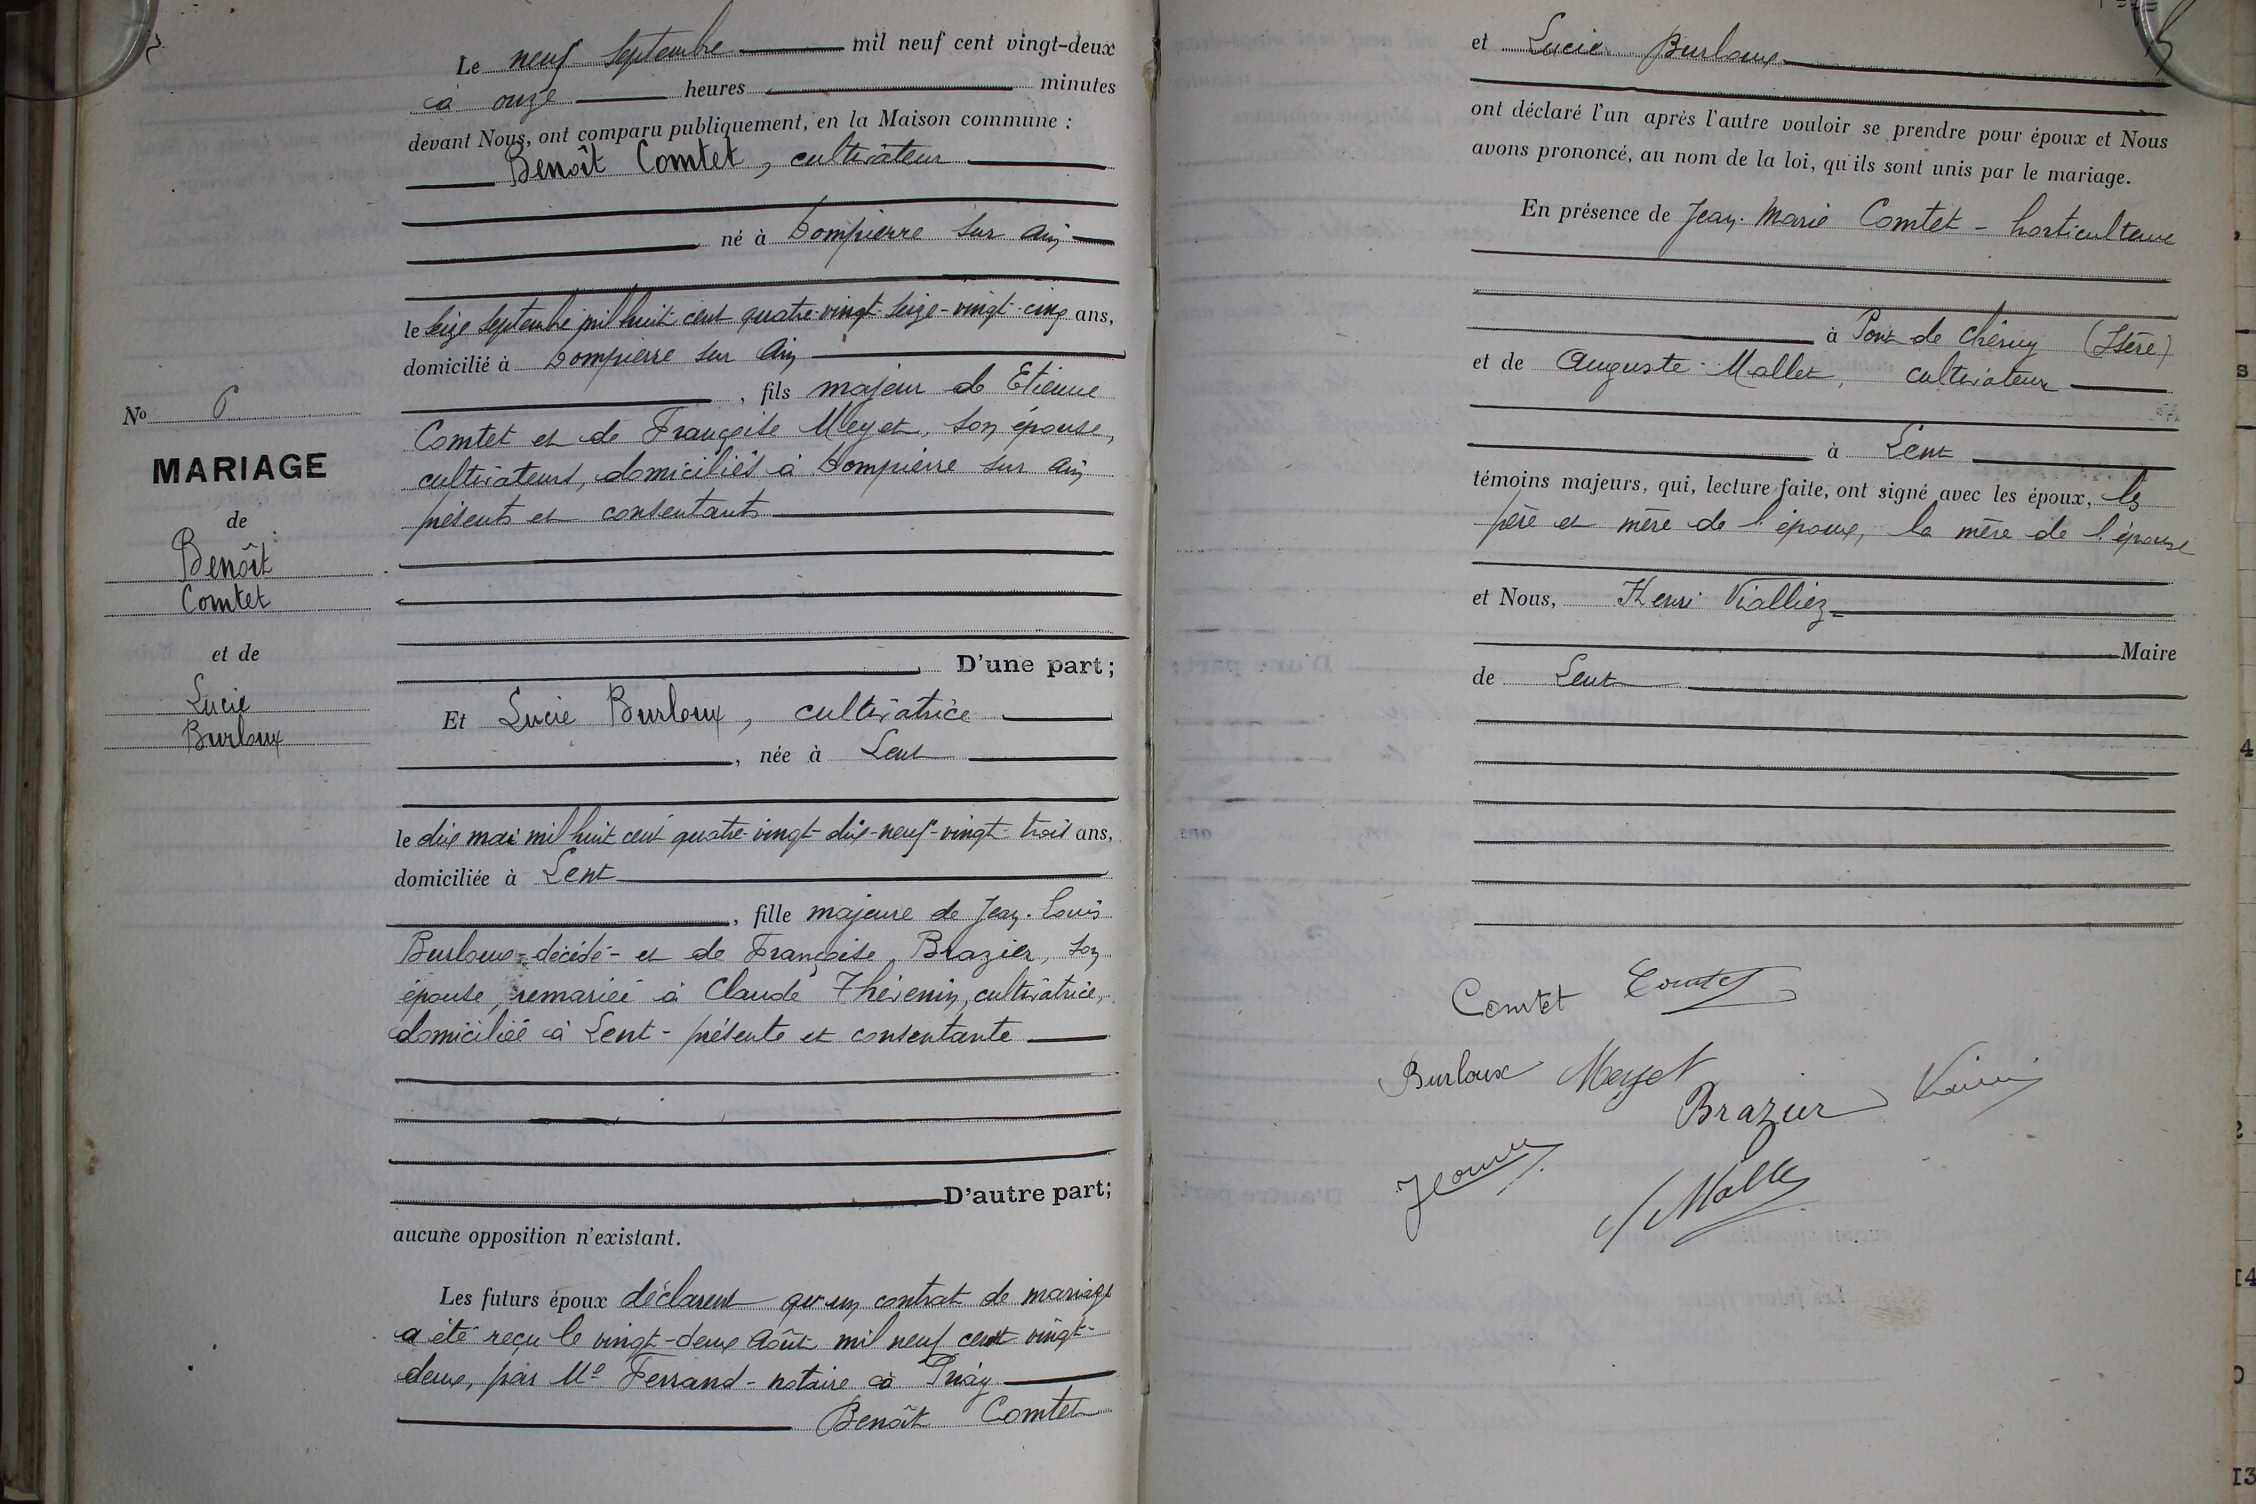 Le neuf septembre mil neuf cent vingt-deux
à onze heures minutes
devant Nous, ont comparu publiquement, en la Maison commune :
Benoît Comtet, cultivateur
né à Dompierre sur Ain
le seize septembre mil huit cent quatre-vingt-seize - vingt-cinq ans,
domicilié à Dompierre sur Ain
, fils majeur de Etienne
Comtet et de Françoise Meyet, son épouse,
cultivateurs, domiciliés à Dompierre sur Ain
présents et consentants
D'une part;
Et Lucie Burloux, cultivatrice
, née à Lent
le dix mai mil huit cent quatre-vingt-dix-neuf - vingt-trois ans,
domiciliée à Lent
, fille majeure de Jean-Louis
Burloux - décédé - et de Françoise Brazier, son
épouse, remariée à Claude Thévenin, cultivatrice,
domiciliée à Lent - présente et consentante
D'autre part;
aucune opposition n'existant.
Les futurs époux déclarent qu'un contrat de mariage
a été reçu le vingt-deux août mil neuf cent vingt-
deux, par Me Ferrand - notaire à Priay
Benoît Comtet
No 6
MARIAGE
de
Benoît
Comtet
et de
Lucie
Burloux
et Lucie Burloux
ont déclaré l'un après l'autre vouloir se prendre pour époux et Nous
avons prononcé, au nom de la loi, qu'ils sont unis par le mariage.
En présence de Jean-Marie Comtet - horticulteur
à Pont de Chéruy (Isère)
et de Auguste Mallet, cultivateur
à Lent
témoins majeurs, qui, lecture faite, ont signé avec les époux, les
père et mère de l'époux, la mère de l'épouse
et Nous, Henri Vialliez
Maire
de Lent
Comtet Comtet
Burloux Meyet
Brazier